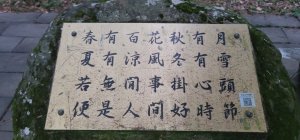 春有百花秋有月
夏有涼風冬有雪
若無閒事掛心頭
便是人間好時節